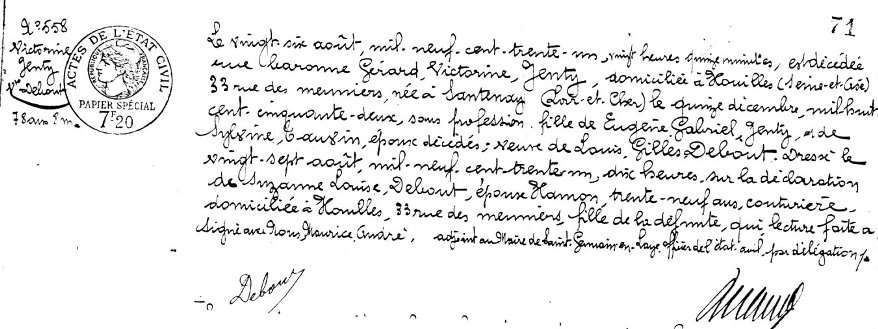 71
N° 558
Victorine
Jenty
Vve Debout
78 ans 8 m.
ACTES DE L'ÉTAT CIVIL
RÉPUBLIQUE FRANÇAISE
PAPIER SPÉCIAL
7F20
Le vingt-six août, mil-neuf-cent-trente-un, vingt heures quinze minutes, est décédée
rue baronne Gérard, Victorine, Jenty, domiciliée à Houilles (Seine-et-Oise)
33 rue des meuniers, née à Santenay (Loir-et-Cher) le quinze décembre, mil huit
cent-cinquante-deux, sans profession. fille de Eugène Gabriel, Jenty, et de
Sylvine, Gauvin, époux décédés; veuve de Louis, Gilles Debout. Dressé le
vingt-sept août, mil-neuf-cent-trente-un, dix heures, sur la déclaration
de Suzanne Louise, Debout, épouse Hamon, trente-neuf ans, couturière,
domiciliée à Houilles, 33 rue des meuniers, fille de la défunte, qui, lecture faite a
signé avec Nous, Maurice, André, adjoint au Maire de Saint-Germain-en-Laye officier de l'état civil, par délégation
Debout